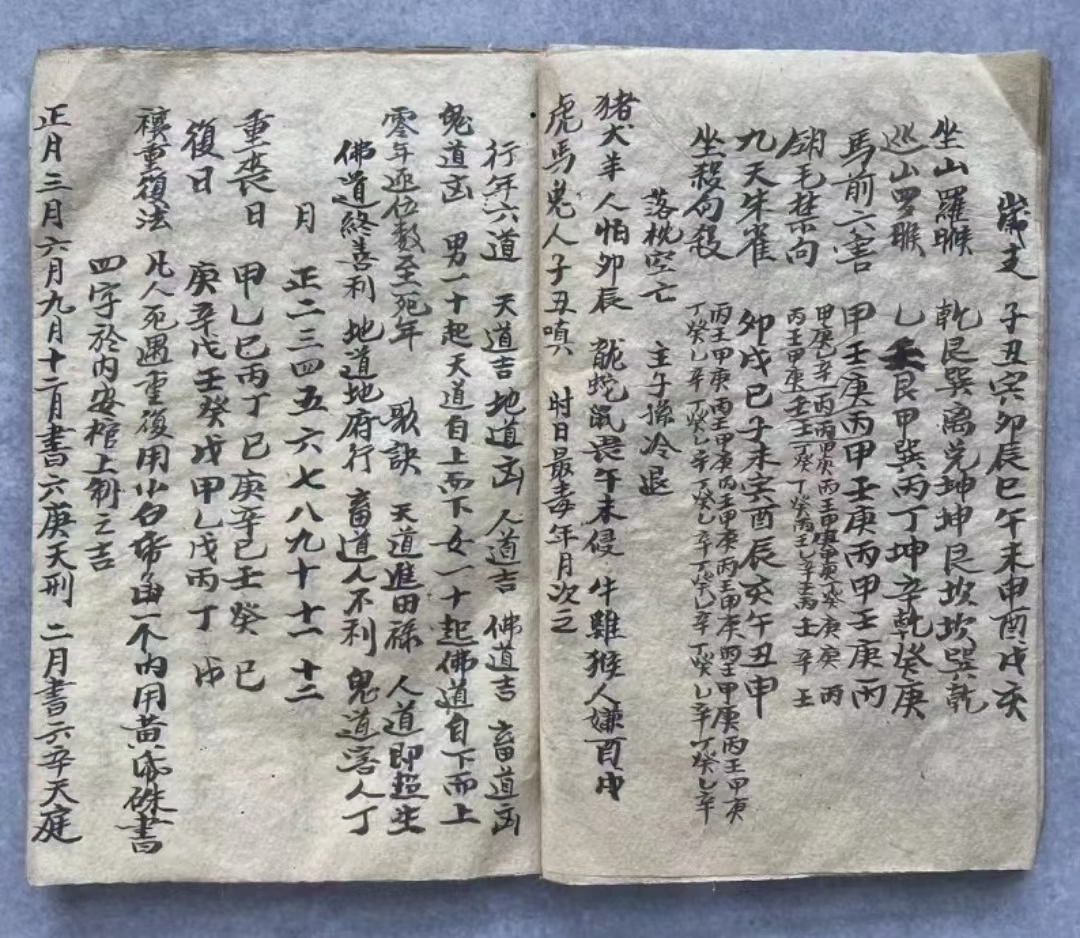 歲支 子丑寅卯辰巳午未申酉戌亥
坐山羅睺 乾艮巽离兌坤坤艮坎坎巽乾
巡山罗睺 乙壬艮甲巽丙丁坤辛乾癸庚
馬前六害 甲壬庚丙甲壬庚丙甲壬庚丙
九天朱雀 卯戌巳子未寅酉辰亥午丑申
坐殺向殺
落枕空亡 主子孫冷退
猪犬羊人怕卯辰 龍蛇鼠畏午未侵 牛雞猴人嫌酉戌
虎馬兔人子丑嗔 时日最毒年月次之
行年六道 天道吉 地道凶 人道吉 佛道吉 畜道凶
鬼道凶 男一十起天道自上而下女一十起佛道自下而上
零年逐位数至死年 歌訣 天道進田祿 人道即超生
佛道終善利 地道地府行 畜道人不利 鬼道害人丁
月 正二三四五六七八九十十一十二
重喪日 甲乙巳丙丁巳庚辛巳壬癸巳
復日 庚辛戊壬癸戊甲乙戊丙丁戊
禳重復法 凡人死遇重復用小白帋函一个内用黄帋硃書
四字於内安棺上制之吉
正月三月六月九月十二月書六庚天刑 二月書六辛天庭